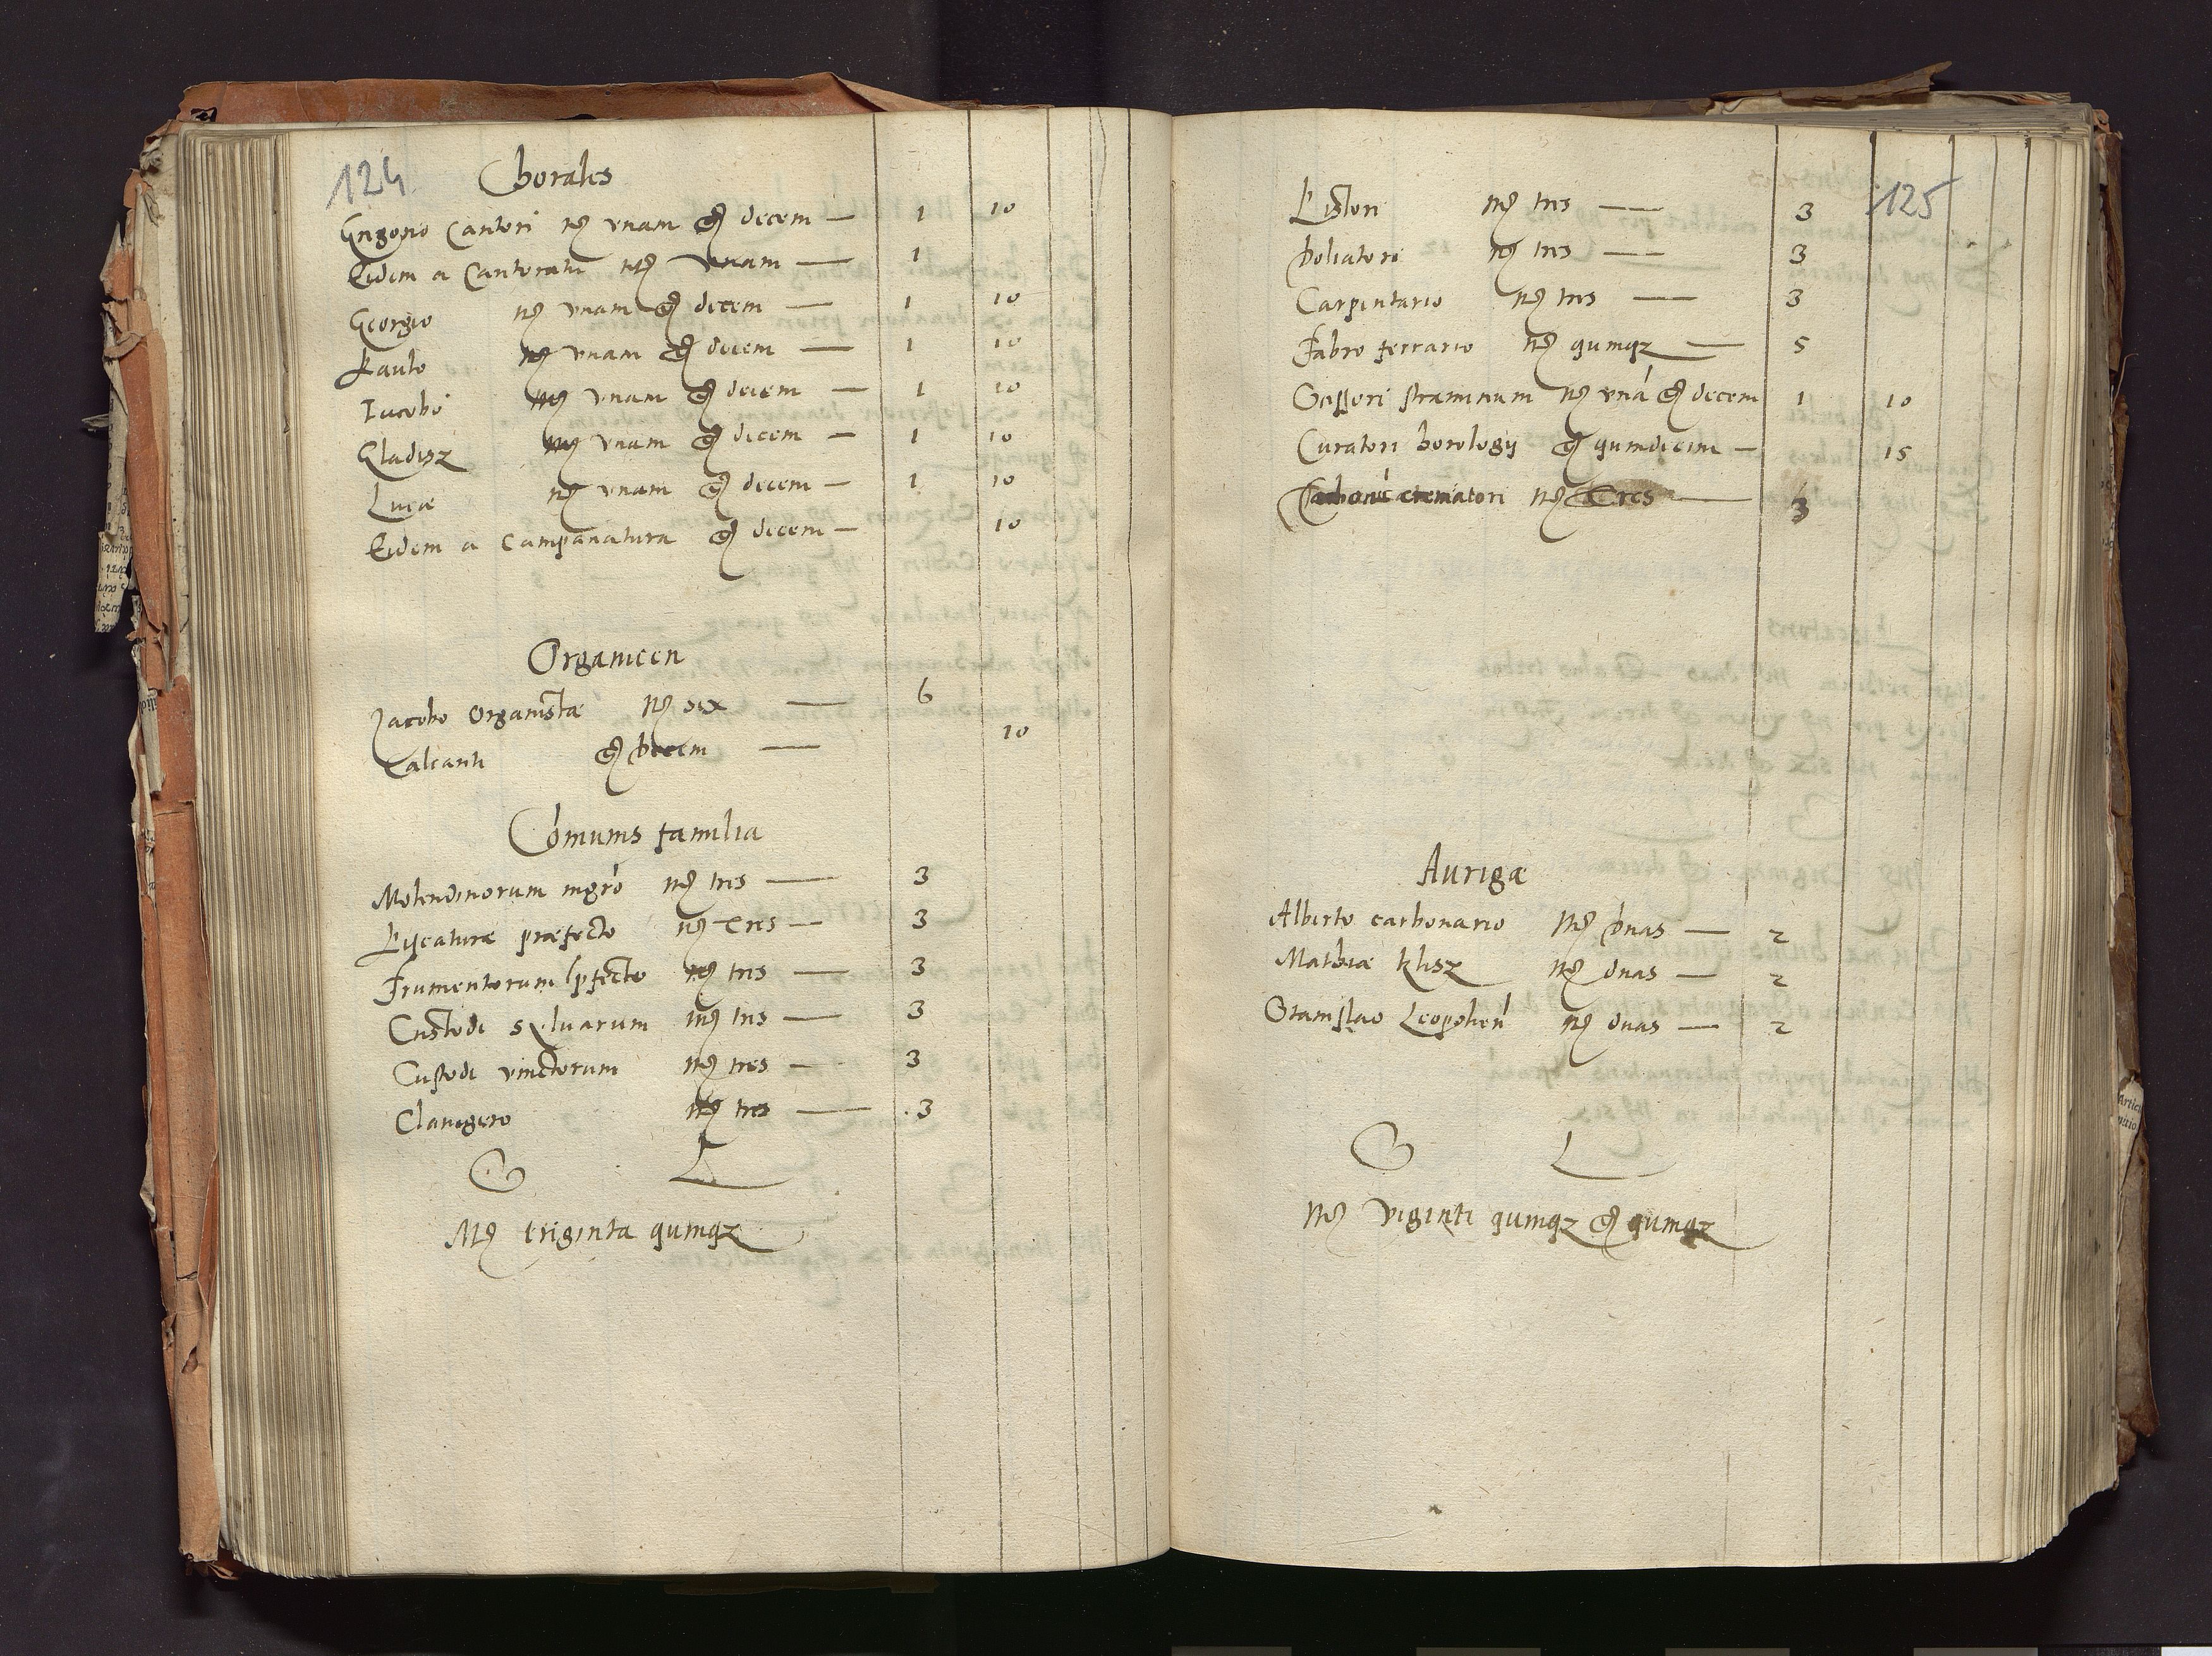 124
Chorales
Gregorio Cantori mr̃ vnam gr̃ decem — 1 10
Eidem a Cantoratu mr̃ vnam — 1
Georgio mr̃ vnam gr̃ decem — 1 10
Paulo mr̃ vnam gr̃ decem — 1 10
Iacobo mr̃ vnam gr̃ decem — 1 10
Gladisz mr̃ vnam gr̃ decem — 1 10
Lucæ mr̃ vnam gr̃ decem — 1 10
Eidem a Campanatura gr̃ decem — 10
Organicen
Jacobo Organistæ mr̃ sex — 6
Calcanti gr̃ decem — 10
Cõmunis familia
Molendinorum mgrõ mr̃ tres — 3
Piscaturæ præfecto mr̃ tres — 3
Frumentorum pfecto mr̃ tres — 3
Custodi syluarum mr̃ tres — 3
Custodi vinctorum mr̃ tres — 3
Clauigero mr̃ tres — 3
Mr̃ triginta quinqz
125
Pistori mr̃ tres — 3
Doliatori mr̃ tres — 3
Carpentario mr̃ tres — 3
Fabro ferrario mr̃ quinqz — 5
Scissori straminum mr̃ vnã gr̃ decem 1 10
Curatori horologij gr̃ quindecim — 15
crematori mr̃ Tres — 3
Aurigæ
Alberto carbonario mr̃ duas — 2
Mathiæ Klisz mr̃ duas — 2
Stanislao Leopolien̄ mr̃ duas — 2
Mr̃ viginti quinqz gr̃ quinqz